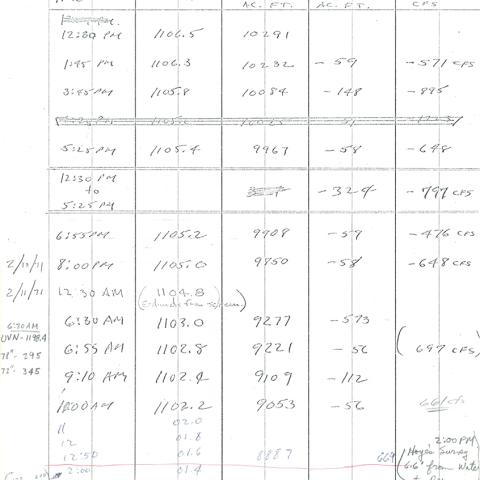 AC. FT. AC. FT. CFS
12:30 PM 1106.5 10291
1:45 PM 1106.3 10232 - 59 - 571 CFS
3:45 PM 1105.8 10084 - 148 - 895
5:25 PM 1105.4 9967 - 58 - 648
12:30 PM
to - 324 - 797 CFS
5:25 PM
6:55 PM 1105.2 9908 - 59 - 476 CFS
2/10/71 8:00 PM 1105.0 9850 - 58 - 648 CFS
2/11/71 12:30 AM (1104.8
6:30 AM 6:30 AM 1103.0 9277 - 573
UVN-1198.4
78"- 295 6:55 AM 1102.8 9221 - 56 (697 CFS)
72" 345 9:10 AM 1102.4 9109 - 112
1102.2 9053 - 56
11 02.0
12 01.8 2:00 PM
12:50 01.6 8887 669 Hoye's Survey
2:00 01.4 6.6" from Water